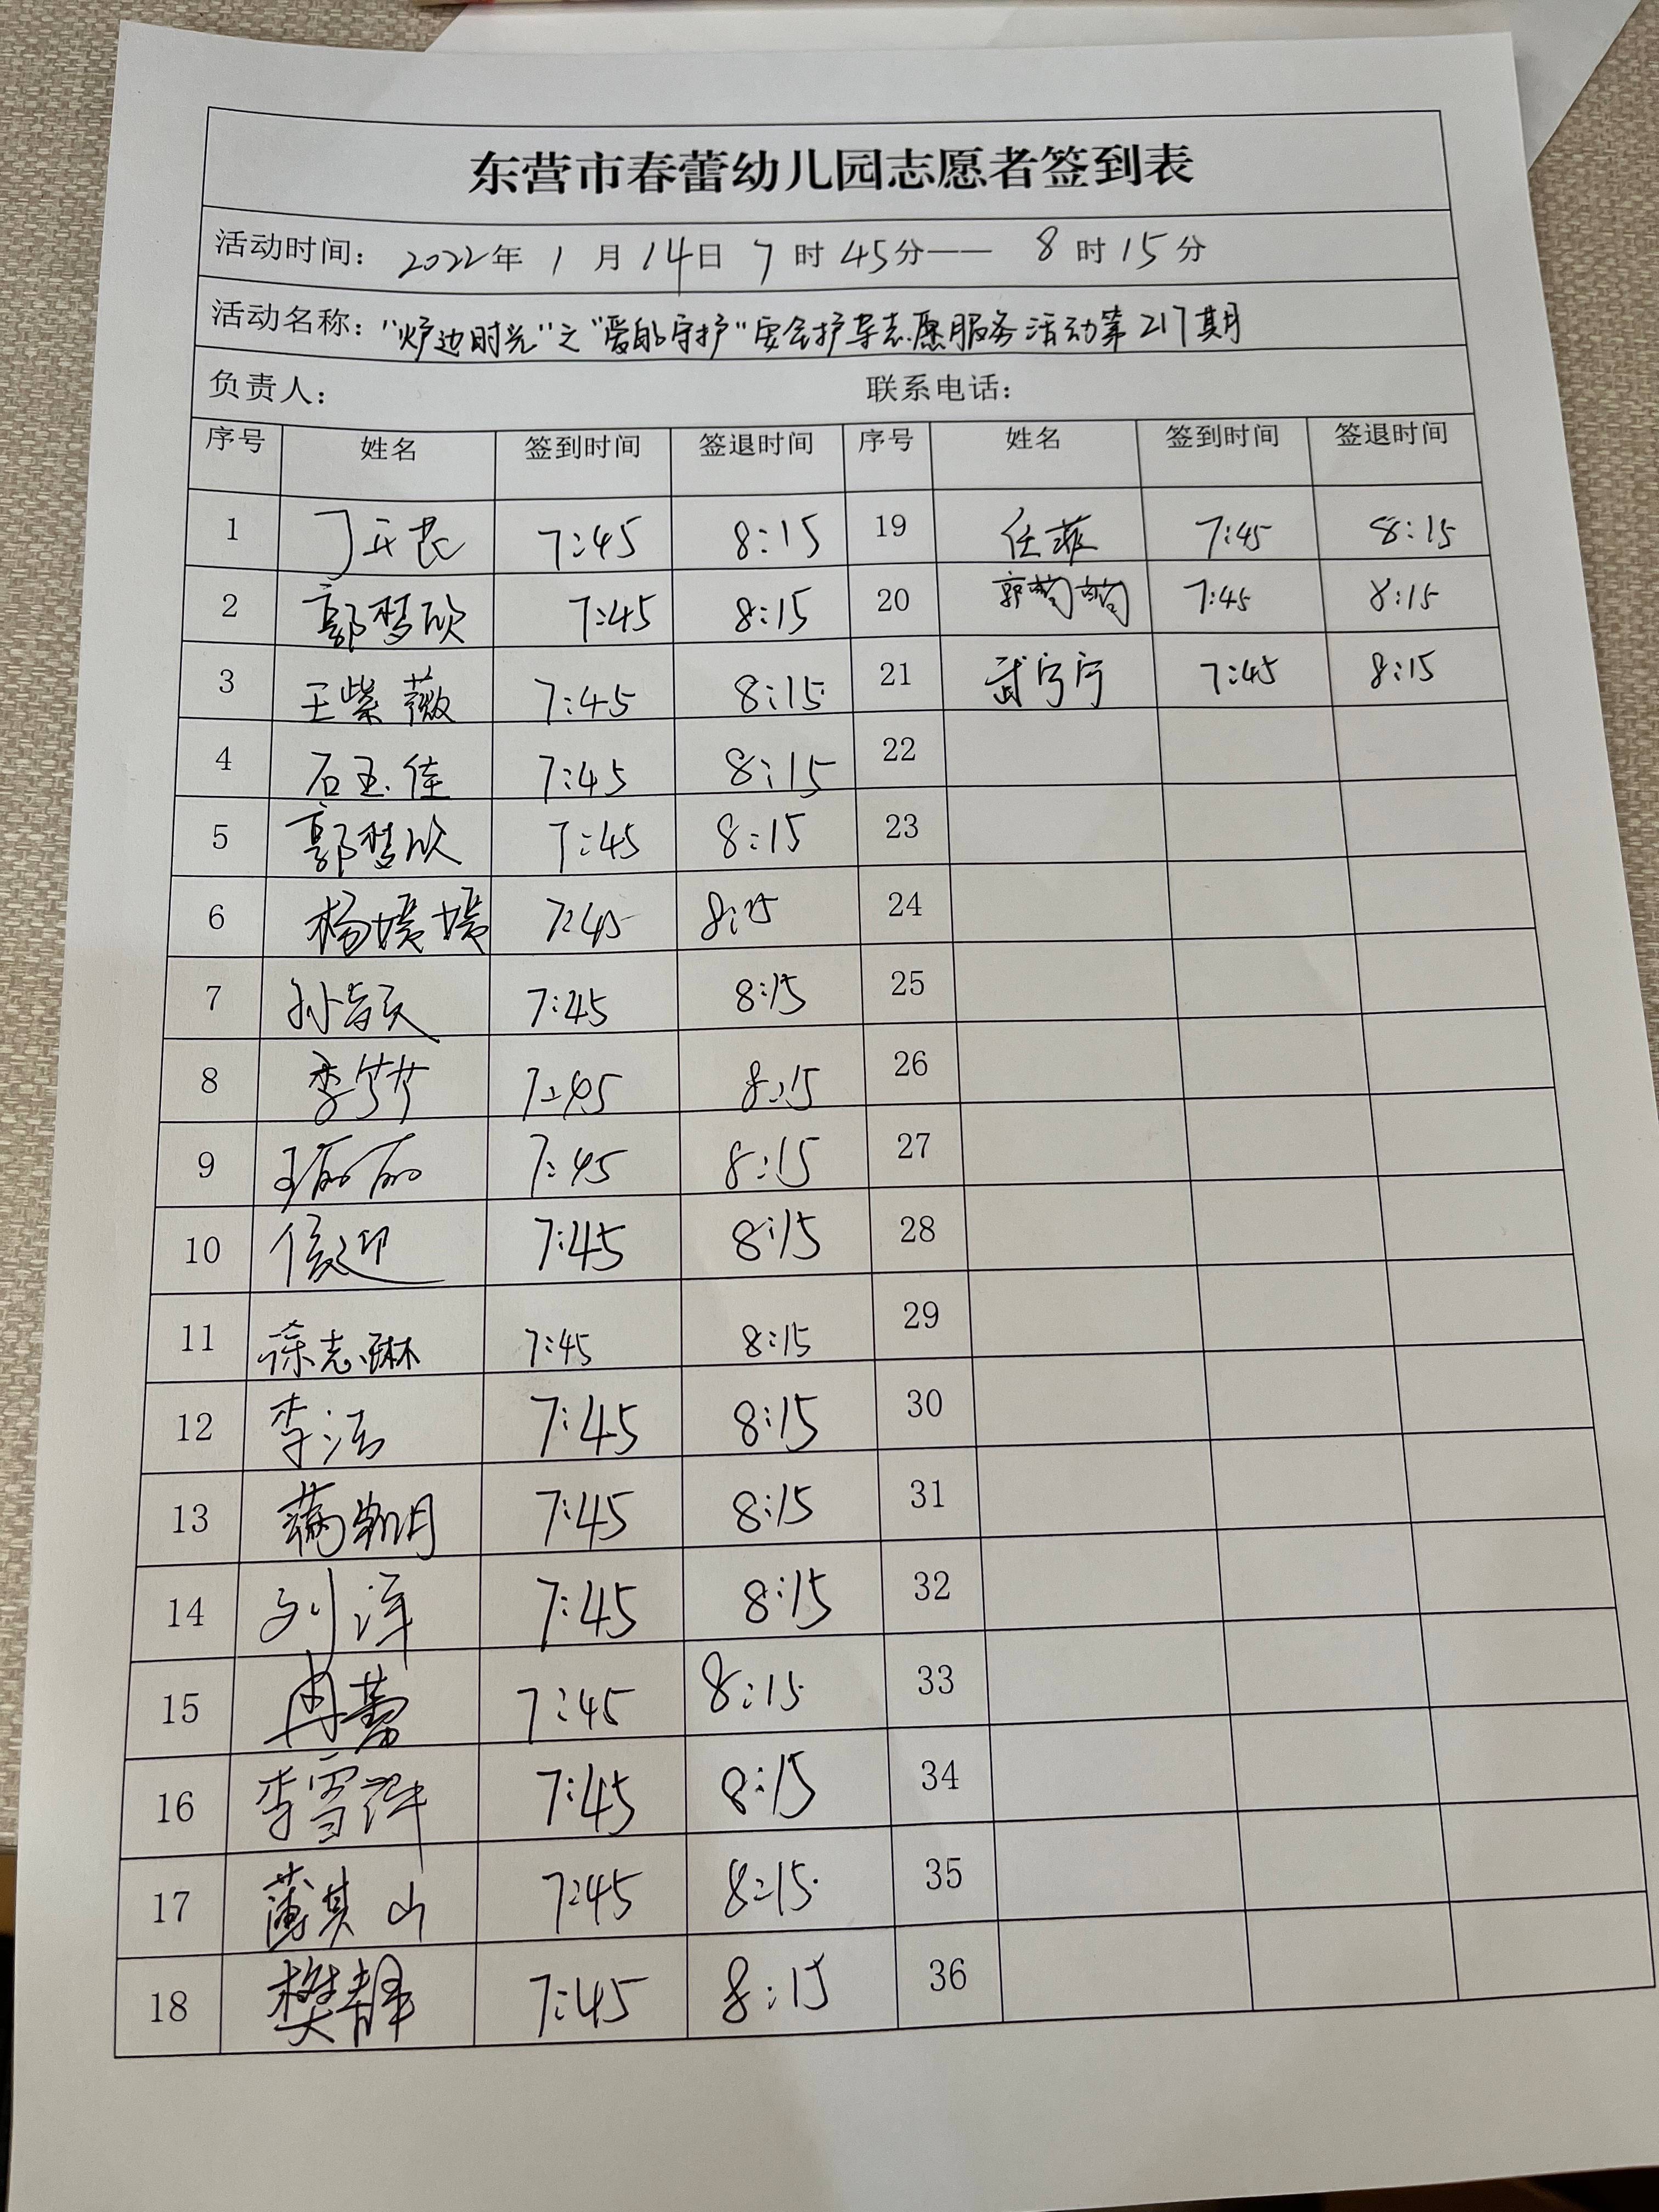 东营市春蕾幼儿园志愿者签到表
活动时间: 2022年 1 月 14日 7 时 45分—— 8 时 15 分
活动名称: "炉边时光"之"爱的守护"安全护导志愿服务活动第217期
负责人: 联系电话:
序号 姓名 签到时间 签退时间 序号 姓名 签到时间 签退时间
1 丁 7:45 8:15 19 任菲 7:45 8:15
2 郭梦欣 7:45 8:15 20 郭 7:45 8:15
3 王紫薇 7:45 8:15 21 武宁宁 7:45 8:15
4 石玉佳 7:45 8:15 22
5 郭梦欣 7:45 8:15 23
6 杨媛媛 7:45 8:15 24
7 孙 7:45 8:15 25
8 李 7:45 8:15 26
9 王丽丽 7:45 8:15 27
10 7:45 8:15 28
11 徐志琳 7:45 8:15 29
12 李洁 7:45 8:15 30
13 7:45 8:15 31
14 刘洋 7:45 8:15 32
15 冉蕾 7:45 8:15 33
16 李雪萍 7:45 8:15 34
17 薄其山 7:45 8:15 35
18 樊静 7:45 8:15 36